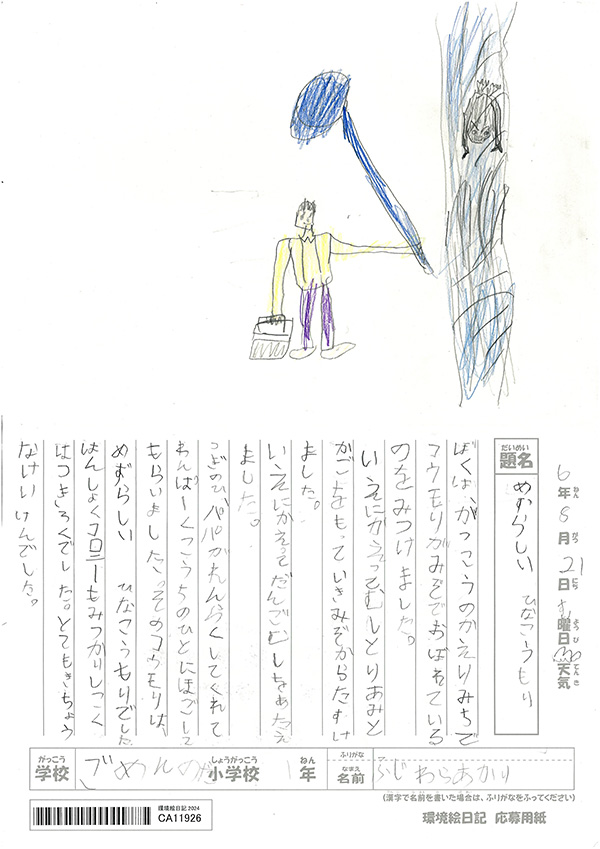 6年8月21日 曜日 天気
ねん がつ にち ようび てんき
だいめい
題名
めずらしい ひなこうもり
ぼくは、がっこうのかえりみちで
コウモリがみぞでおぼれている
のをみつけました。
いえにかえって、むしとりあみと
かごをもっていきみぞからたすけ
ました。
いえにかえってだんごむしをあたえ
ました。
つぎのひ、パパがれんらくしてくれて
わんぱーくこうちのひとにほごして
もらいました。そのコウモリは、
めずらしい ひなこうもりでした
はんしょくコロニーもみつかりしこく
はつきろくでした。とてもきちょう
なけいけんでした。
がっこう
学校
ごめんの
しょうがっこう
小学校
1
ねん
年
ふりがな
なまえ
名前
ふじわらあかり
(漢字で名前を書いた場合は、ふりがなをふってください)
環境絵日記 2024
CA11926
環境絵日記 応募用紙